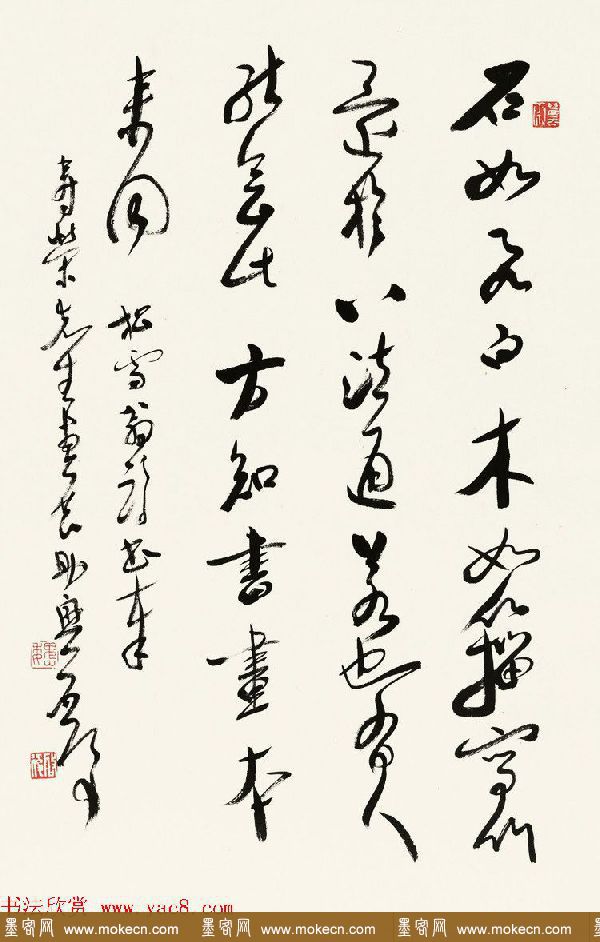 石如飛白木如籀寫竹
還於八法通若也有人
能會此方知書畫本
來同 松雪翁詩書奉
壽榮先生畫長
书法欣赏 www.yac8.com
墨客网 www.mokecn.com 墨客网 www.mokecn.com 墨客网 www.mokecn.com